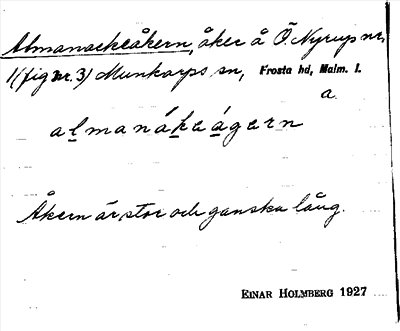 Almanackeåkern, åker å Ö. Nyrup nr.
1 (fig nr. 3) Munkarps sn, Frosta hd, Malm. l.
a
almanákaágern
Åkern är stor och ganska lång.
EINAR HOLMBERG 1927